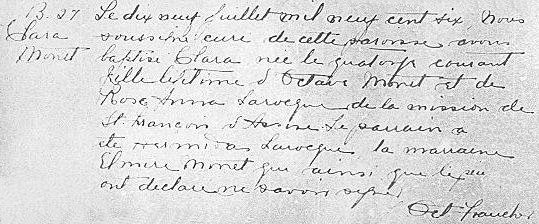 B. 27
Clara
Monet
Le dix neuf Juillet mil neuf cent six, Nous
soussigné curé de cette paroisse avons
baptisé Clara née le quatorze courant
fille légitime d'Octave Monet et de
Rose Anna Larocque de la mission de
St. François d' Le parrain a
été Larocque, la marraine
Elmire Monet qui ainsi que le père
ont déclaré ne savoir signé.